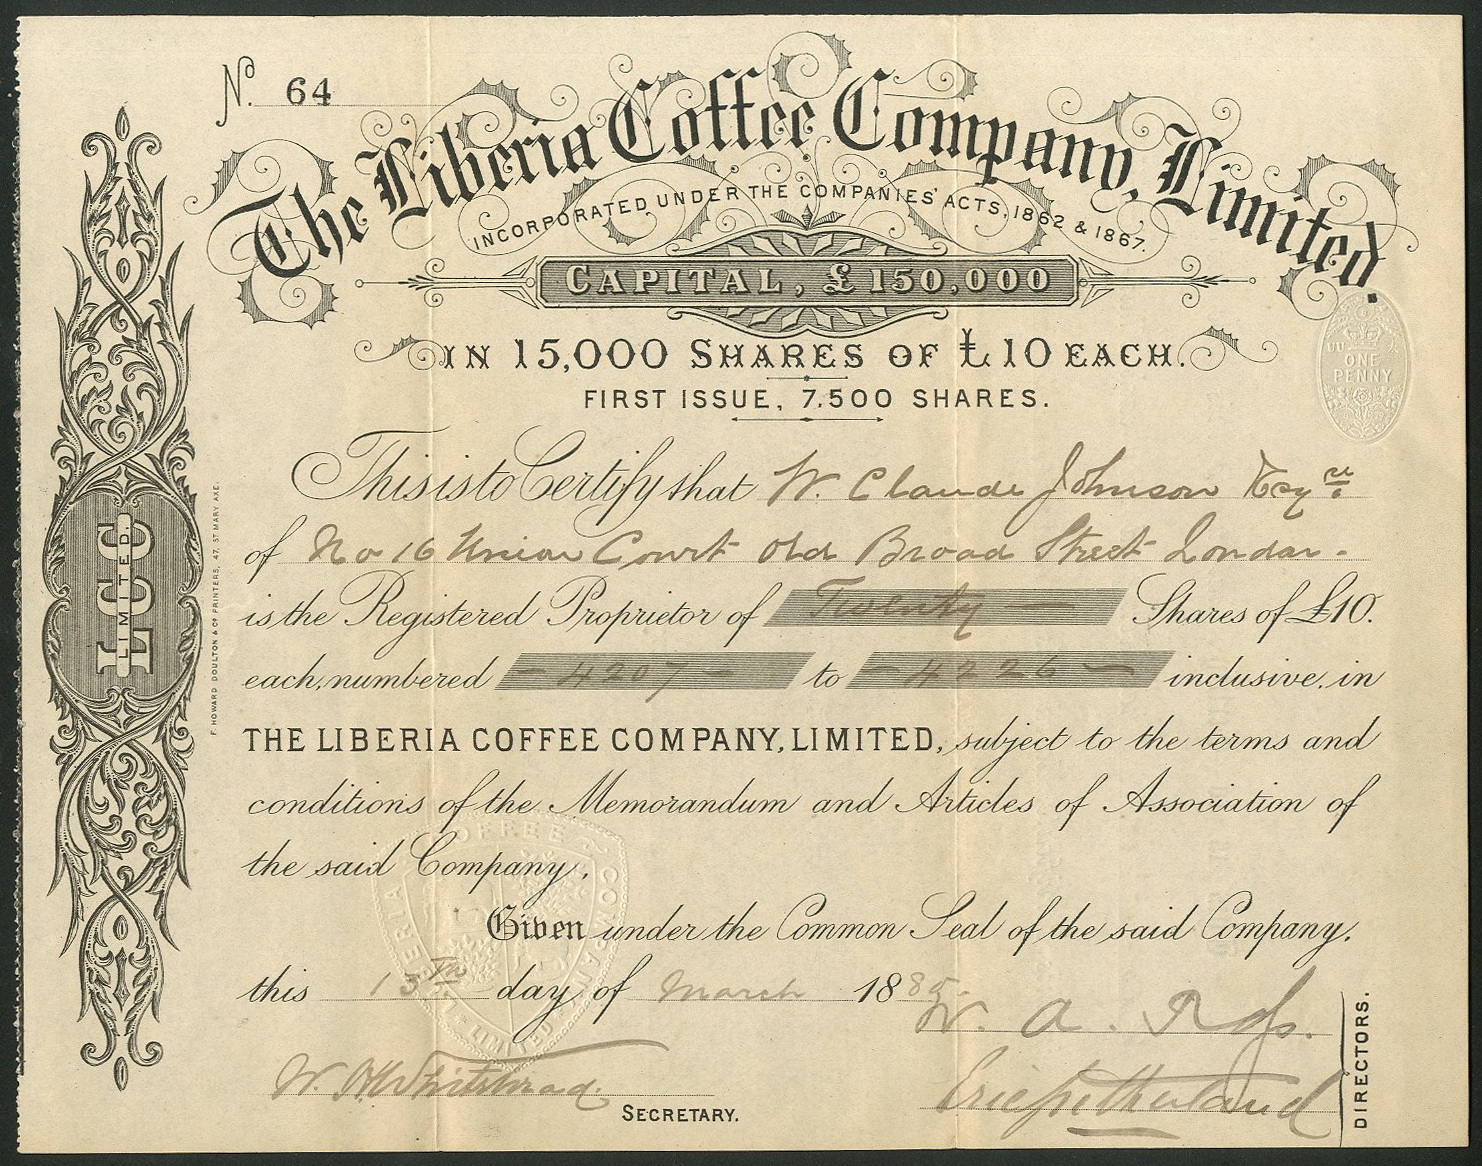 No. 64
The Liberia Coffee Company, Limited.
INCORPORATED UNDER THE COMPANIES' ACTS, 1862 & 1867.
CAPITAL, £150,000
IN 15,000 SHARES OF £10 EACH.
FIRST ISSUE, 7,500 SHARES.
ONE
PENNY
This is to Certify that W. Claude Johnson Esqre
of No 16 Union Court Old Broad Street London.
is the Registered Proprietor of Twenty — Shares of £10.
each, numbered – 4207 – to – 4226 – inclusive, in
THE LIBERIA COFFEE COMPANY, LIMITED, subject to the terms and
conditions of the Memorandum and Articles of Association of
the said Company.
Given under the Common Seal of the said Company,
this 13th day of March 1885.
LIBERIA COFFEE COMPANY LIMITED
W. A. Ross.
SECRETARY.
DIRECTORS.
LCC
LIMITED.
F. HOWARD DOULTON & CO PRINTERS, 47, ST MARY AXE.